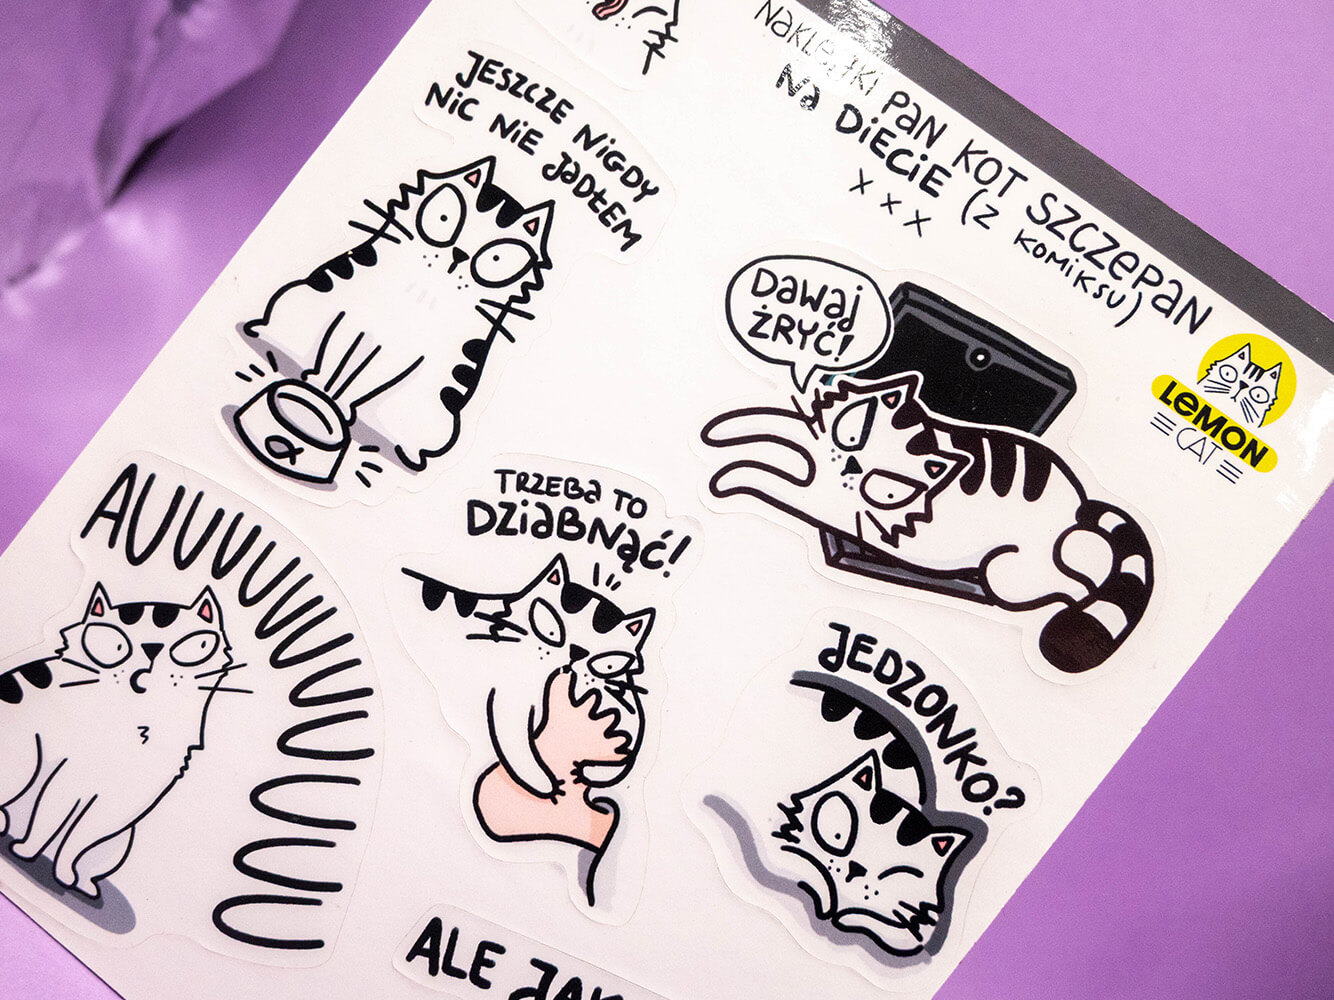 NAKLEJKI PAN KOT SZCZEPAN
NA DIECIE (Z KOMIKSU)
x x x
LEMON
CAT
JESZCZE NIGDY
NIC NIE JADŁEM
DAWAJ
ŻRYĆ!
AUUUUUUUUUUUUU
TRZEBA TO
DZIABNĄĆ!
JEDZONKO?
ALE